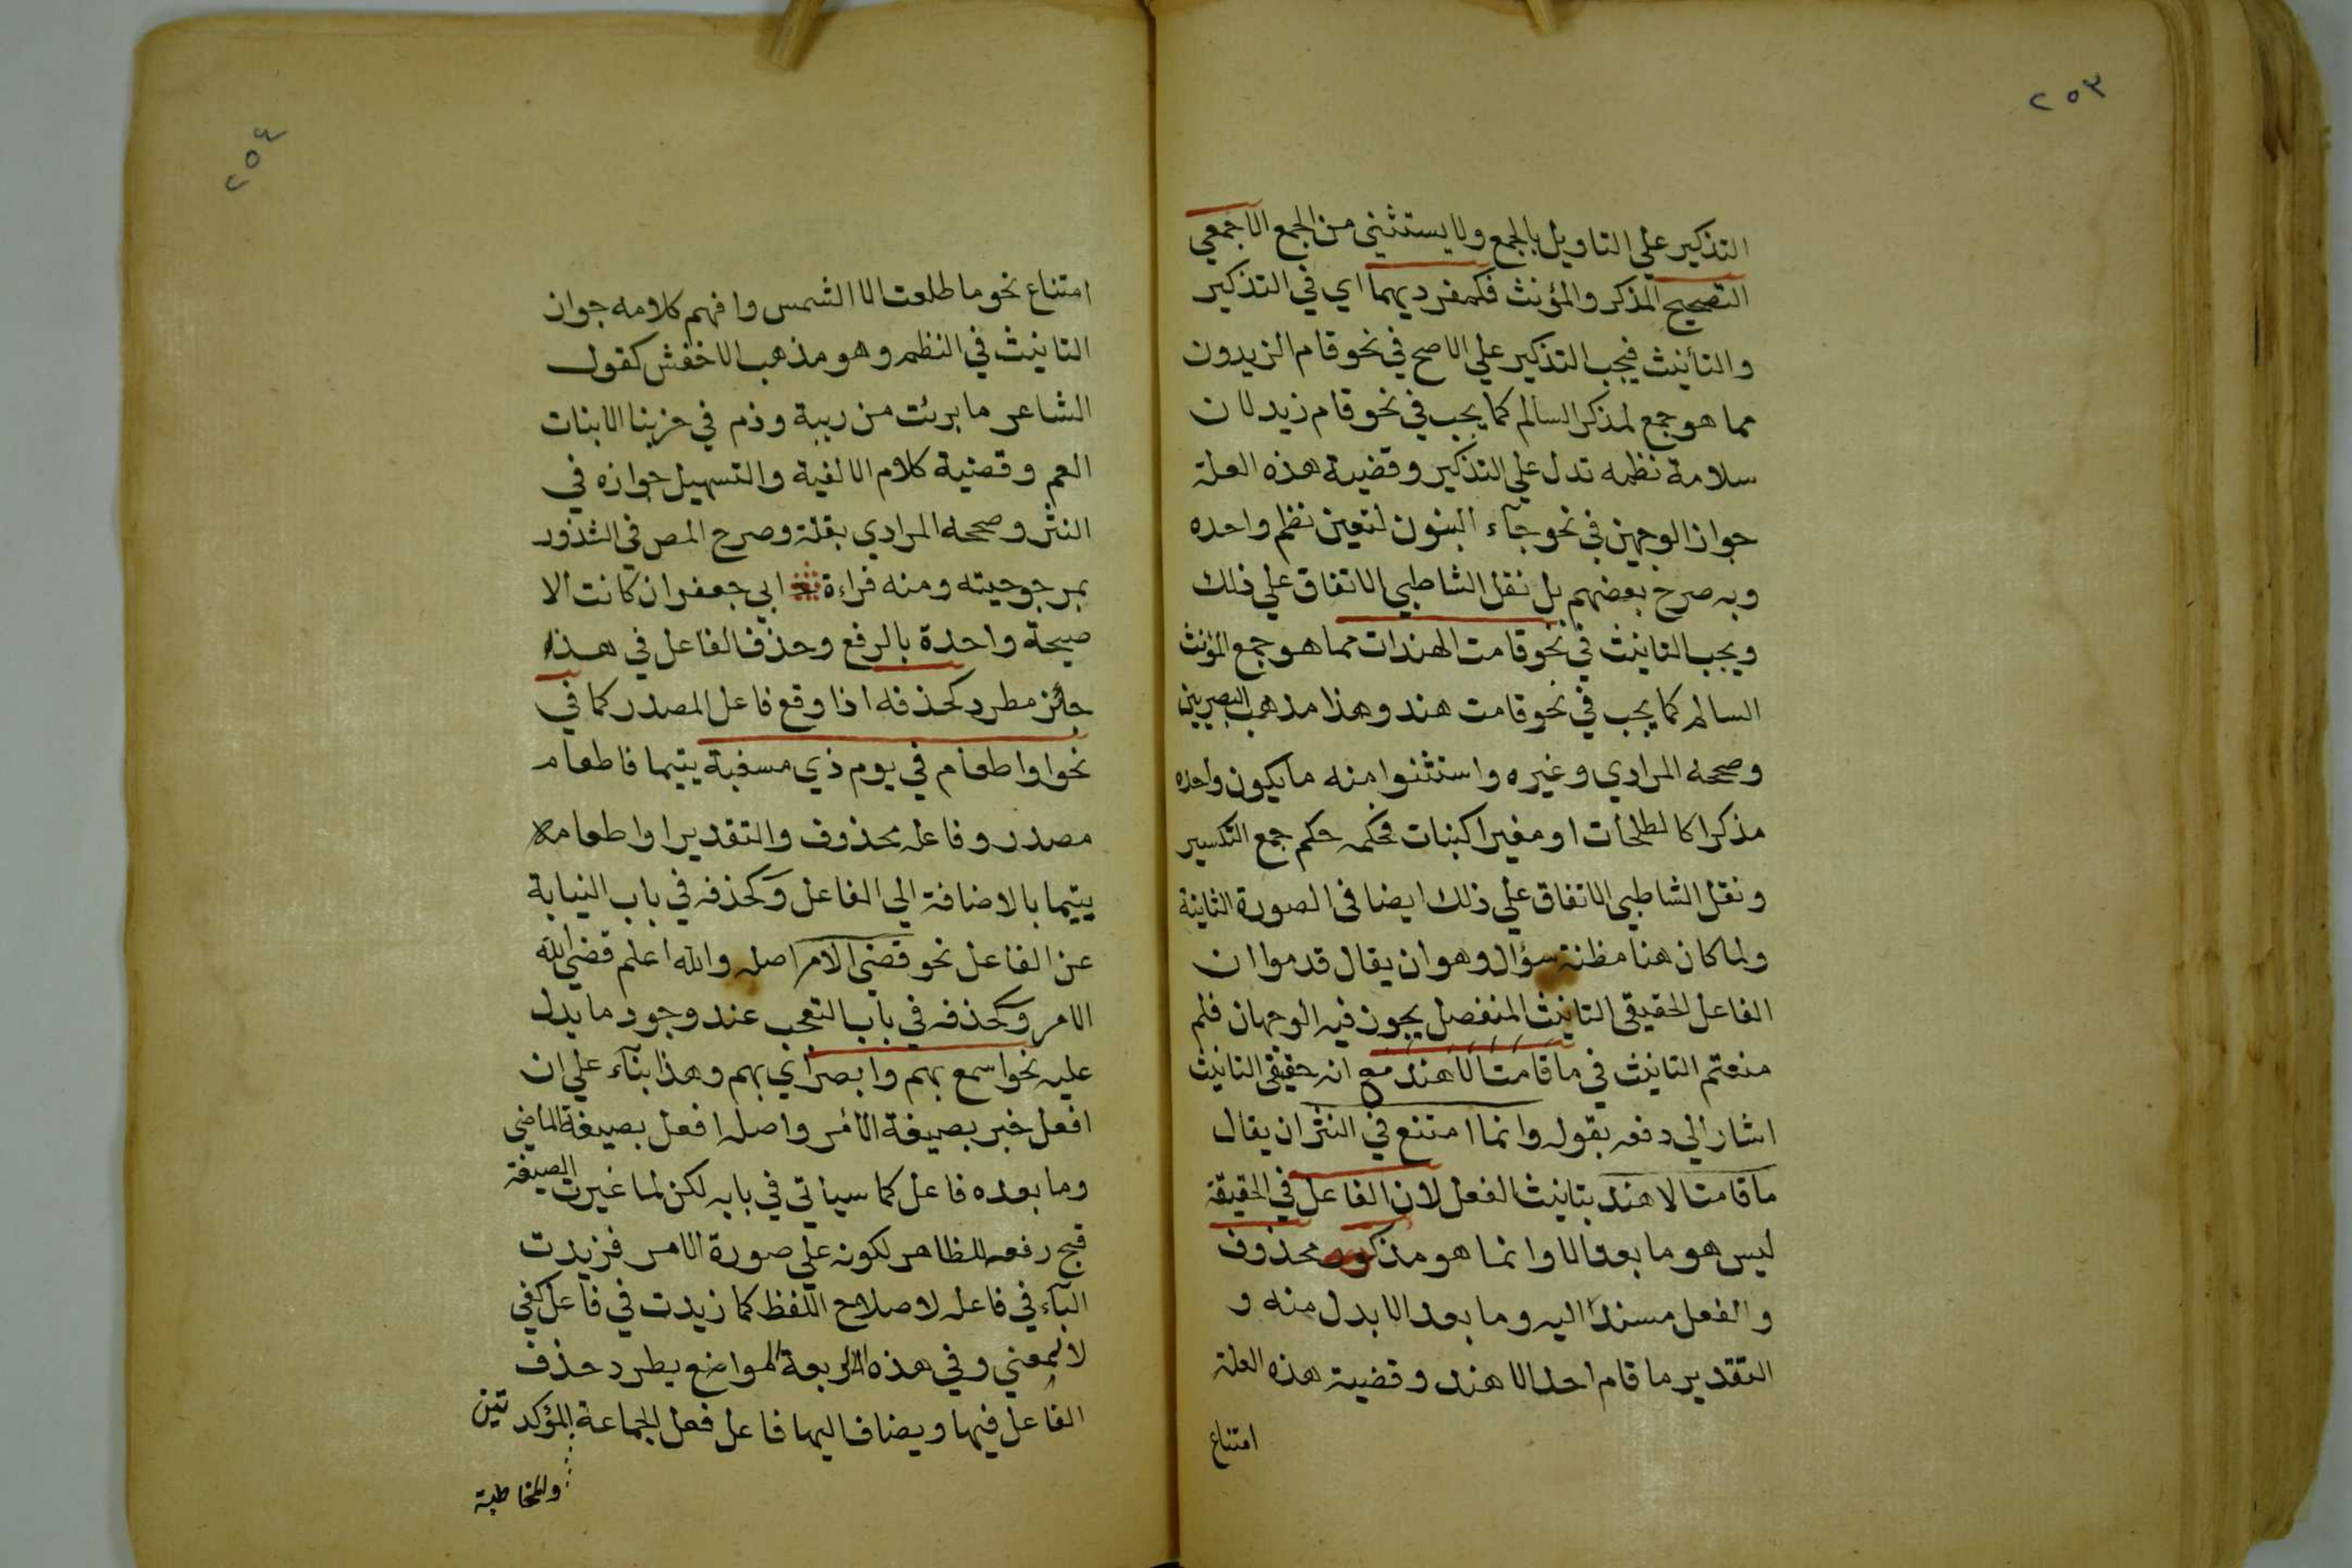 ٢٥٣
التذكير علي التاويل بالجمع ولا يستثني من الجمع الا جمعي
التصحيح المذكر والمؤنث فكمفرديهما اي في التذكير
والتأنيث فيجب التذكير علي الاصح في نحو قام الزيدون
مما هو جمع لمذكر السالم كما يجب في نحو قام زيد لان
سلامة نظمه تدل علي التذكير وقضية هذه العلة
جواز الوجهين في نحو جآء البنون لتعين نظم واحده
وبه صرح بعضهم بل نقل الشاطبي الاتفاق علي ذلك
ويجب التانيث في نحو قامت الهندات مما هو جمع المؤنث
السالم كما يجب في نحو قامت هند وهذا مذهب البصريين
وصححه المرادي وغيره واستثنوا منه ما يكون واحده
مذكرا كالطلحات او مغيرا كبنات فحكمه حكم جمع التكسير
ونقل الشاطبي الاتفاق علي ذلك ايضا في الصورة الثانية
ولما كان هنا مظنة سؤال وهو ان يقال قدموا ان
الفاعل الحقيقي التانيث المنفصل يجوز فيه الوجهان فلم
منعتم التانيث في ما قامت الا هند مع انه حقيقي التانيث
اشار الي دفعه بقوله وانما امتنع في النثر ان يقال
ما قامت الا هند بتانيث الفعل لان الفاعل في الحقيقة
ليس هو ما بعد الا وانما هو مذكر محذوف
والفعل مسندا اليه وما بعد الا بدل منه و
التقدير ما قام احد الا هند وقضية هذه العلة
امتناع
٢٥٤
امتناع نحو ما طلعت الا الشمس وافهم كلامه جواز
التانيث في النظم وهو مذهب الاخفش كقول
الشاعر ما برئت من ريبة وذم في حربنا الا بنات
العم وقضية كلام الالفية والتسهيل جوازه في
النثر وصححه المرادي بقلة وصرح المص في الشذور
بمرجوحيته ومنه قراءة ابي جعفر ان كانت الا
صيحة واحدة بالرفع وحذف الفاعل في هذا
جائز مطرد كحذفه اذا وقع فاعل المصدر كما في
نحو او اطعام في يوم ذي مسغبة يتيما فاطعام
مصدر وفاعله محذوف والتقدير او اطعامه
يتيما بالاضافة الي الفاعل وكحذفه في باب النيابة
عن الفاعل نحو قضي الامر اصله والله اعلم قضي الله
الامر وكحذفه في باب التعجب عند وجود ما يدل
عليه نحو اسمع بهم وابصر اي بهم وهذا بنآء علي ان
افعل خبر بصيغة الامر واصله افعل بصيغة الماضي
وما بعده فاعل كما سياتي في بابه لكن لما غيرت الصيغة
قبح رفعه للظاهر لكونه علي صورة الامر فزيدت
البآء في فاعله لاصلاح اللفظ كما زيدت في فاعل كفي
لا لمعني وفي هذه الاربعة المواضع يطرد حذف
الفاعل فيها ويضاف اليها فاعل فعل الجماعة المؤكد تين
والمخاطبة